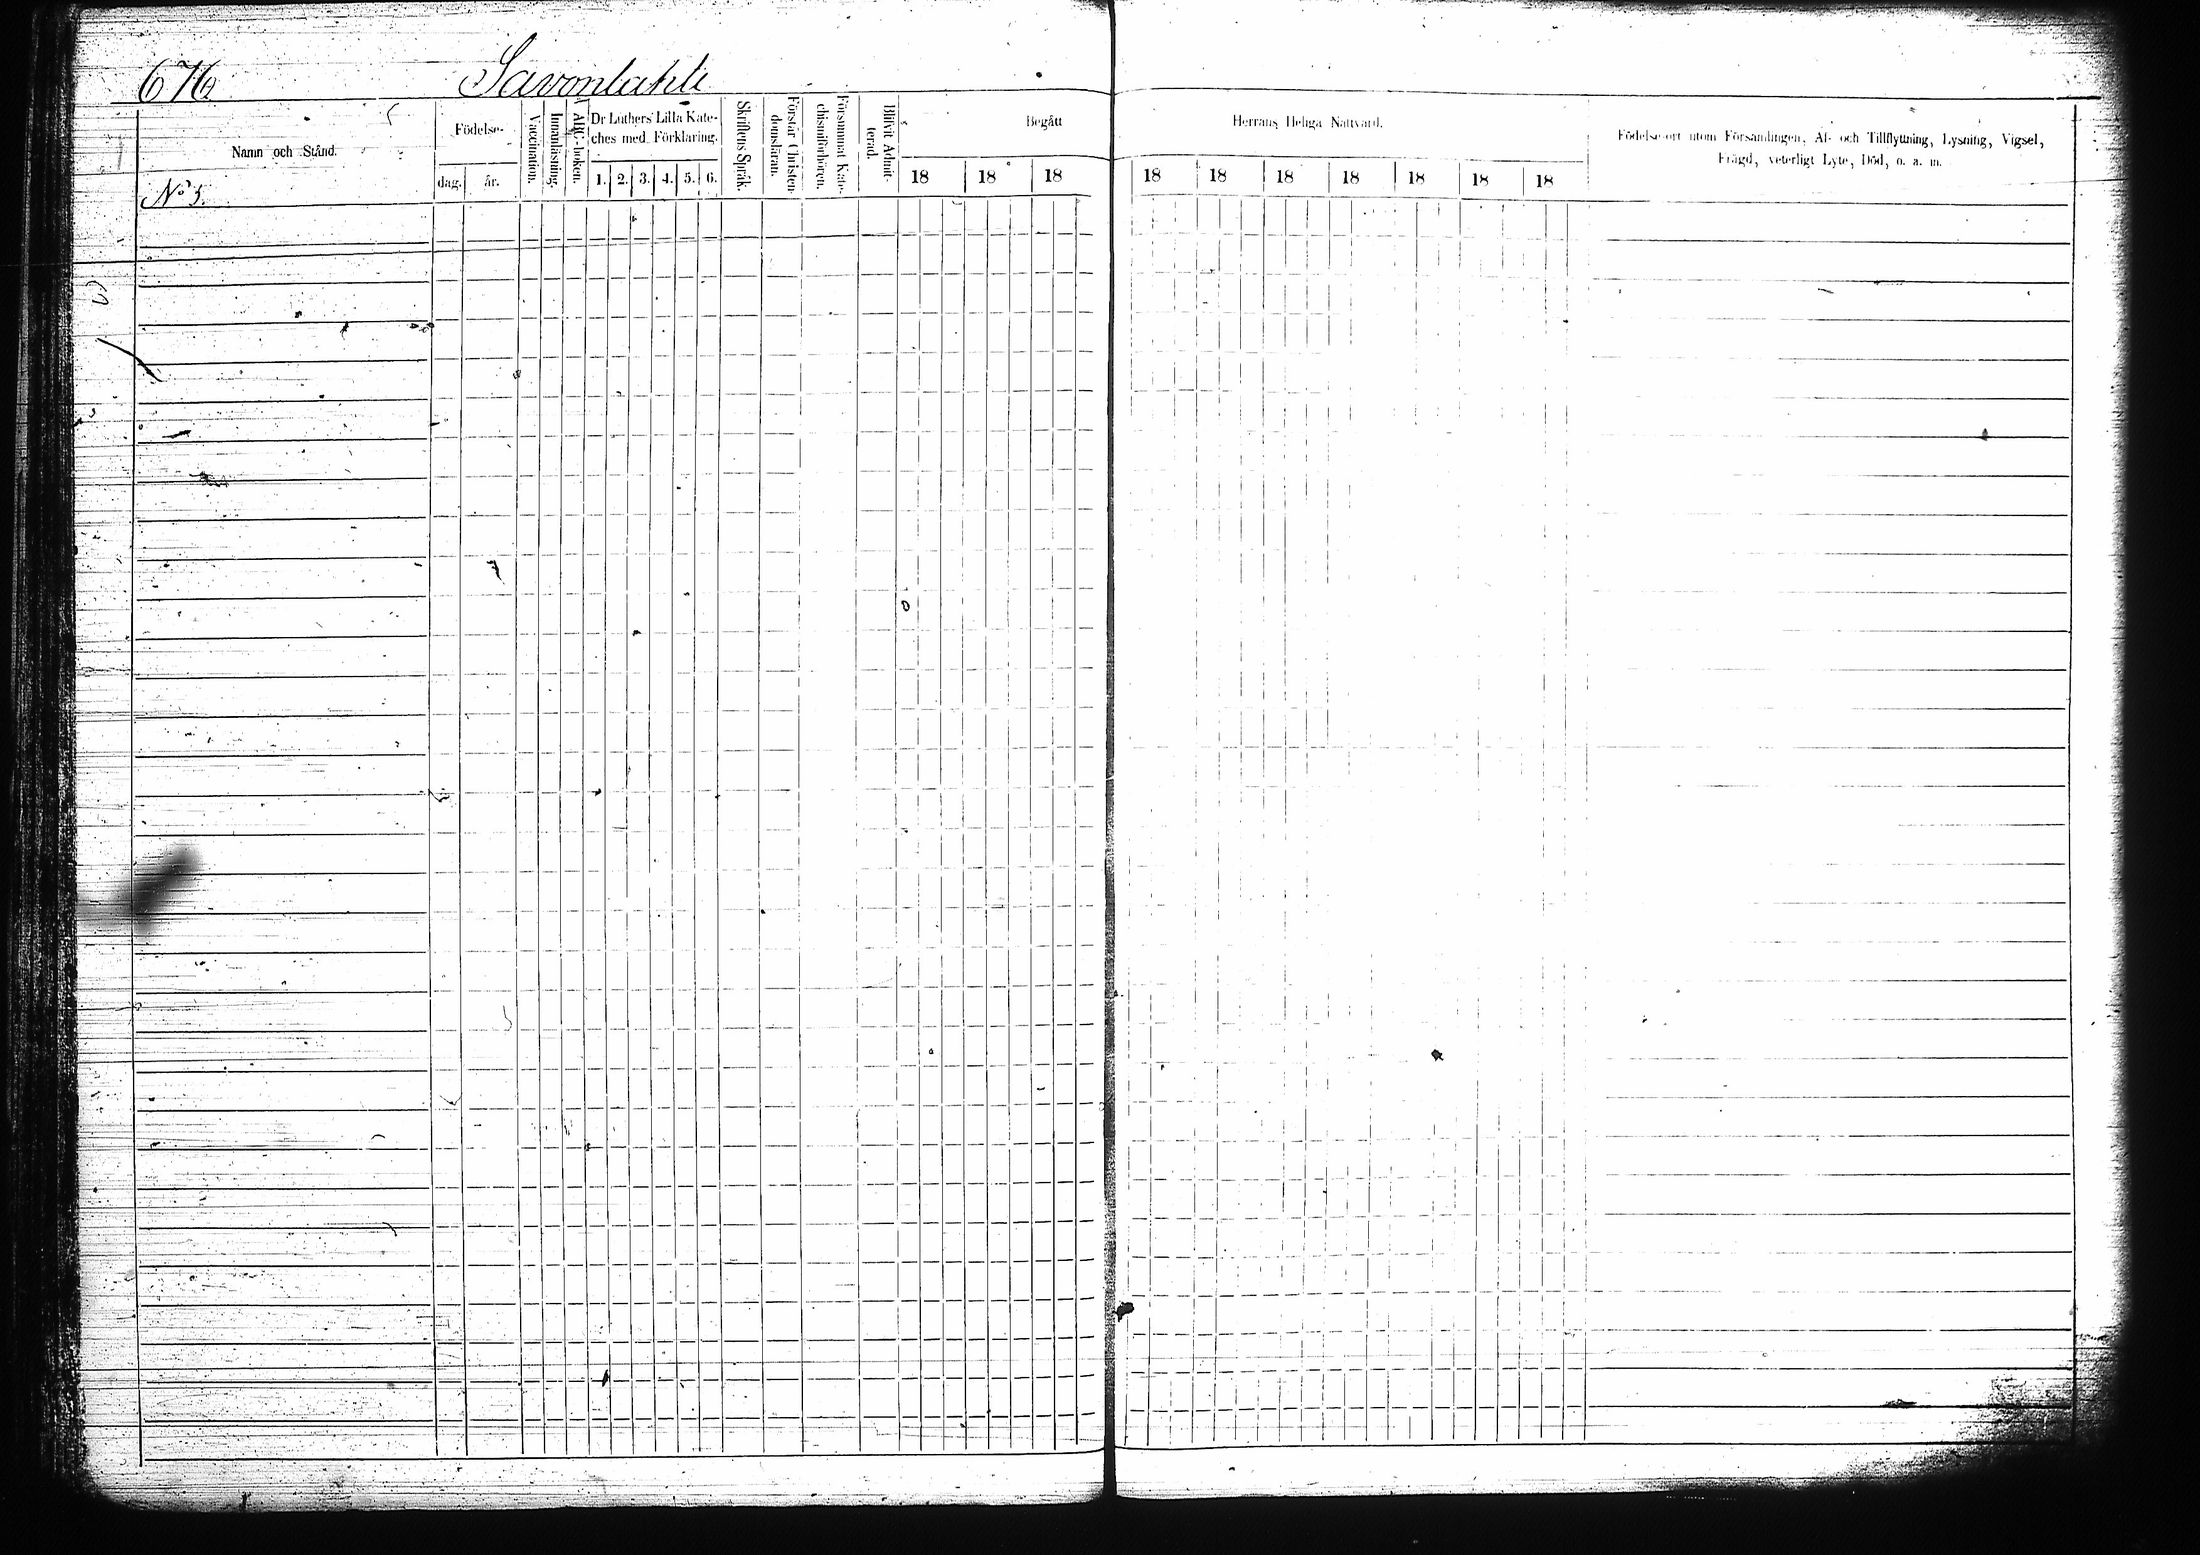 676
Savonlahti
Namn och Stånd.
N:o 5.
Födelse-
dag. år.
Vaccination.
Innanläsning.
ABC-boken.
Dr Luthers Lilla Kate-
ches med Förklaring.
1. 2. 3. 4. 5. 6.
Skriftens Språk.
Förstår Christen-
domsläran.
Försummat Kate-
chismiförhören.
Blifvit Admit-
terad.
Begått
18 18 18
Herrans Heliga Nattvard.
18 18 18 18 18 18 18
Födelse-ort utom Församlingen, Af- och Tillflyttning, Lysning, Vigsel,
Frägd, veterligt Lyte, Död, o. a. m.